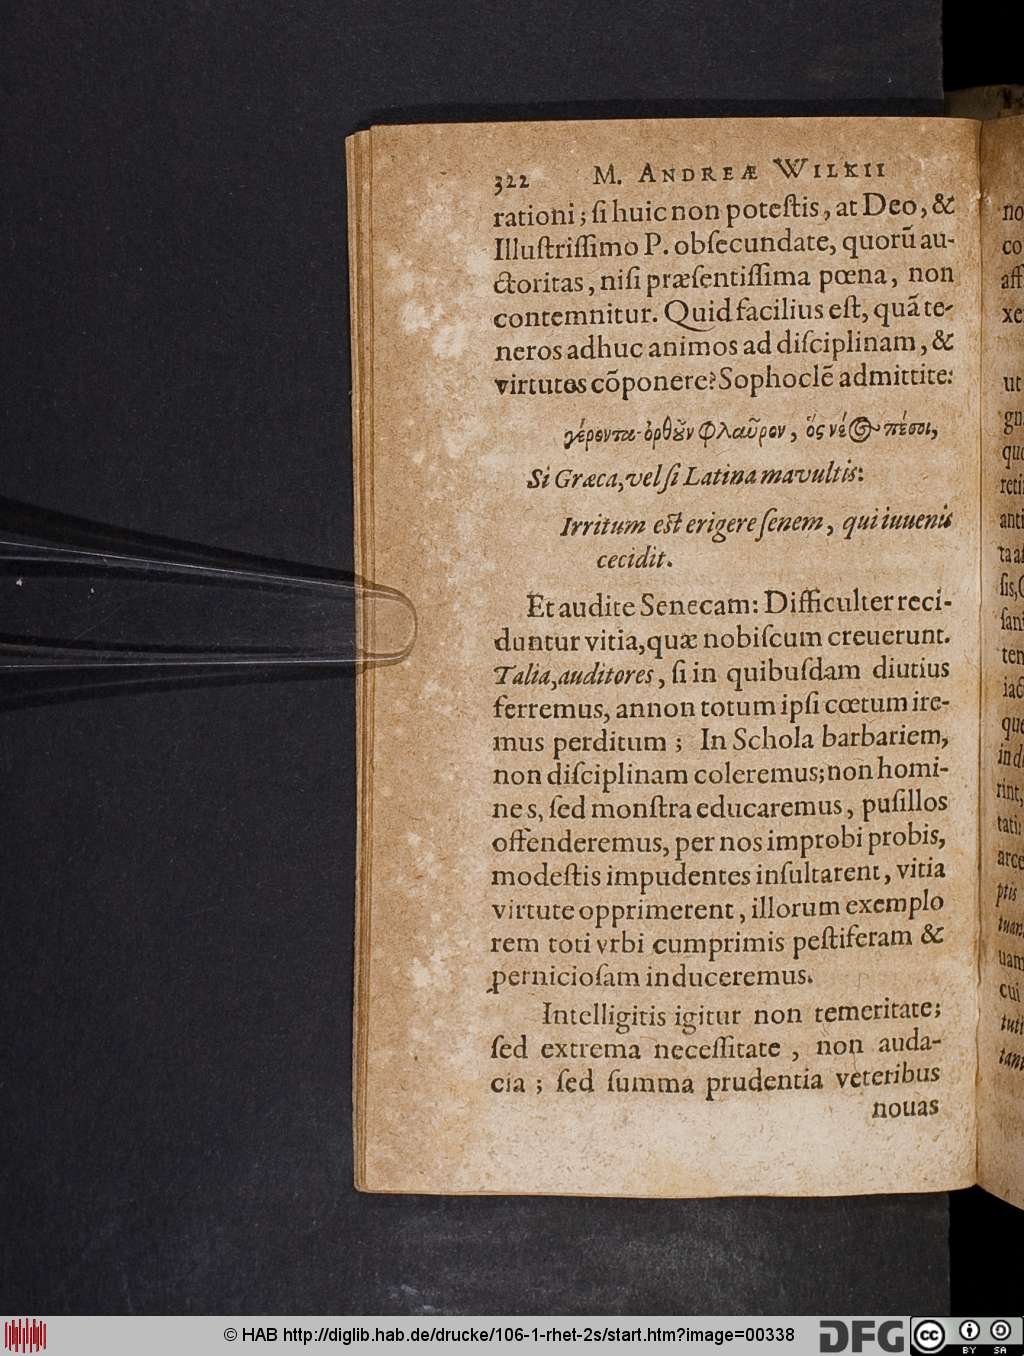 322 M. ANDREÆ WILKII
rationi; ſi huic non poteſtis, at Deo, &
Illuſtriſſimo P. obſecundate, quorũ au-
ctoritas, niſi præſentiſſima pœna, non
contemnitur. Quid facilius eſt, quã te-
neros adhuc animos ad diſciplinam, &
virtutes cõponere? Sophoclẽ admittite:
Si Græca, vel ſi Latina mavultis:
Irritum eſt erigere ſenem, qui iuuenis
cecidit.
Et audite Senecam: Difficulter reci-
duntur vitia, quæ nobiſcum creuerunt.
Talia, auditores, ſi in quibuſdam diutius
ferremus, annon totum ipſi cœtum ire-
mus perditum; In Schola barbariem,
non diſciplinam coleremus; non homi-
nes, ſed monſtra educaremus, puſillos
offenderemus, per nos improbi probis,
modeſtis impudentes inſultarent, vitia
virtute opprimerent, illorum exemplo
rem toti vrbi cumprimis peſtiferam &
pernicioſam induceremus.
Intelligitis igitur non temeritate;
ſed extrema neceſſitate, non auda-
cia; ſed ſumma prudentia veteribus
nouas
no
co
aff
xe
ut
gn
que
reti
anti
ta
ſis,
ſan
ten
iac
que
in
rint,
tati
arce
ptis
uam
cui
tuti
tant
© HAB http://diglib.hab.de/drucke/106-1-rhet-2s/start.htm?image=00338
DFG
CC BY SA